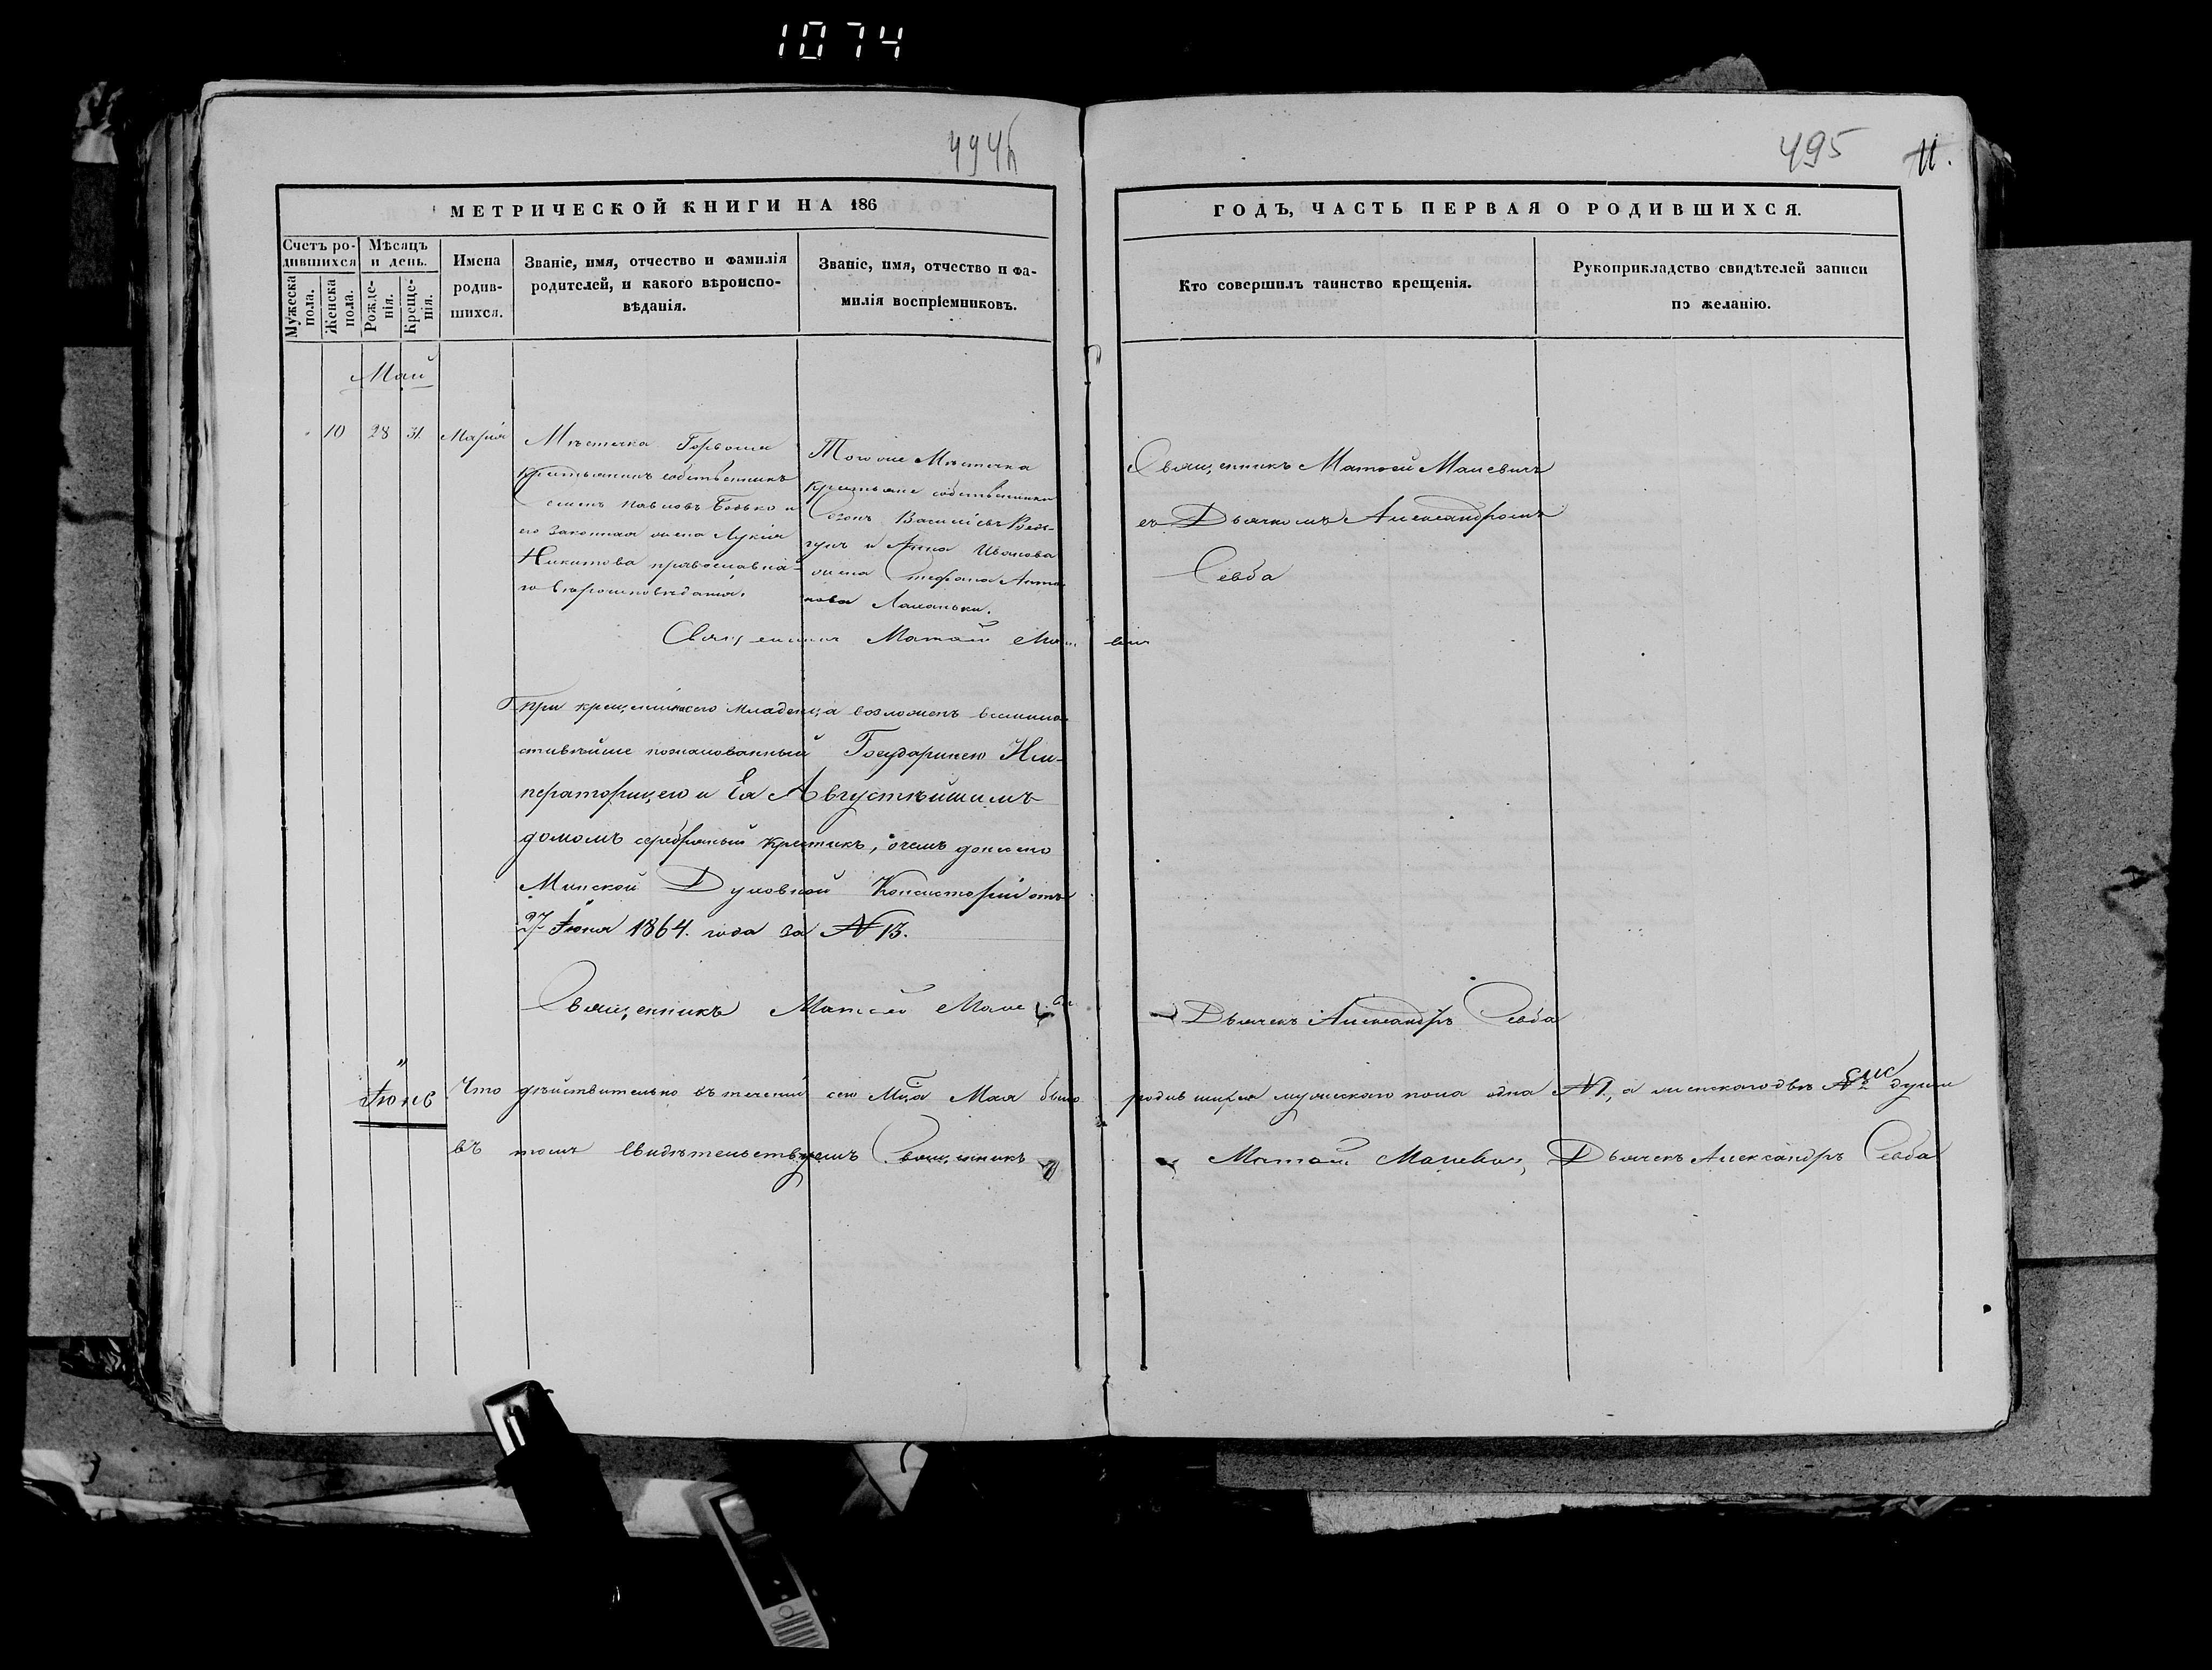 1074
494
495
11.
МЕТРИЧЕСКОЙ КНИГИ НА 186
ГОДЪ, ЧАСТЬ ПЕРВАЯ О РОДИВШИХСЯ.
Счетъ ро-
дившихся
Мужеска
пола.
Женска
пола.
Мѣсяцъ
и день.
Рожде-
нія.
Креще-
нія.
Имена
родив-
шихся.
Званіе, имя, отчество и фамилія
родителей, и какого вѣроиспо-
вѣданія.
Званіе, имя, отчество и фа-
милія воспріемниковъ.
Кто совершилъ таинство крещенія.
Рукоприкладство свидѣтелей записи
по желанію.
Май
10 28 31. Марія
Мѣстечка
Крестьянинъ собственникъ
Семенъ Павловъ Бобко и
его законная жена Лукія
Никитова православна-
го вѣроисповѣданія.
Того же Мѣстечка
Крестьяне собственники
Василіевъ
и Анна Иванова
жена Стефана Анто-
нова
Священникъ Матѳей Мацевичъ
съ Дьячкомъ Александромъ
Севба
Священникъ Матѳей
При крещеніи сего младенца возложенъ всемило-
стивѣйше пожалованный Государынею Им-
ператрицею и Ея Августѣйшимъ
домомъ серебряный крестикъ, о чемъ донесено
Минской Духовной Консисторіи отъ
27 Іюня 1864. года за № 13.
Священникъ Матѳей
Дьячекъ Александръ Севба
Іюнь
Что дѣйствительно въ теченіи сего Мца Мая было родившихся мужескаго пола одна № 1, а женскаго двѣ № 2 души
въ томъ свидѣтельствуемъ Священникъ Матѳей Мацевичъ, Дьячекъ Александръ Севба